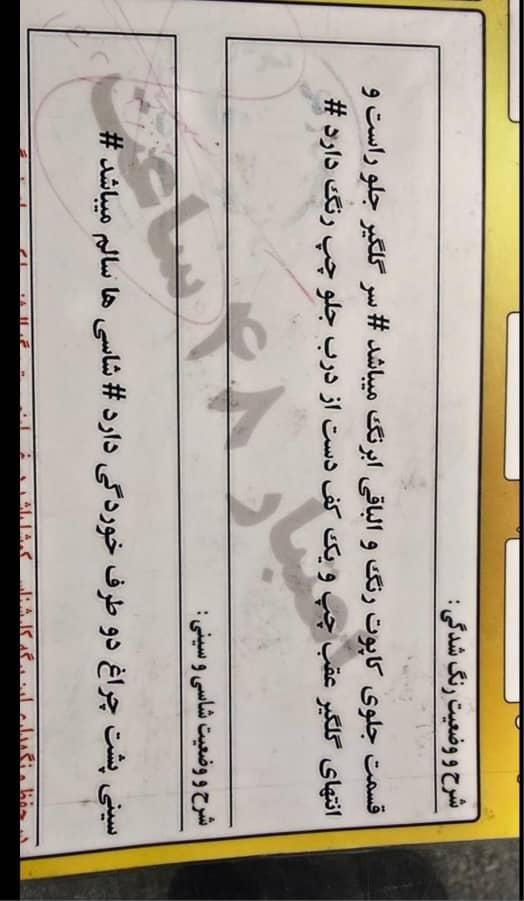 شرح و وضعیت رنگ شدگی :
قسمت جلوی کاپوت رنگ و الباقی ابرنگ میباشد # سر گلگیر جلو راست و
انتهای گلگیر عقب چپ و یک کف دست از درب جلو چپ رنگ دارد #
شرح و وضعیت شاسی و سینی :
سینی پشت چراغ دو طرف خوردگی دارد # شاسی ها سالم میباشد #
اعتبار ۴۸ ساعت